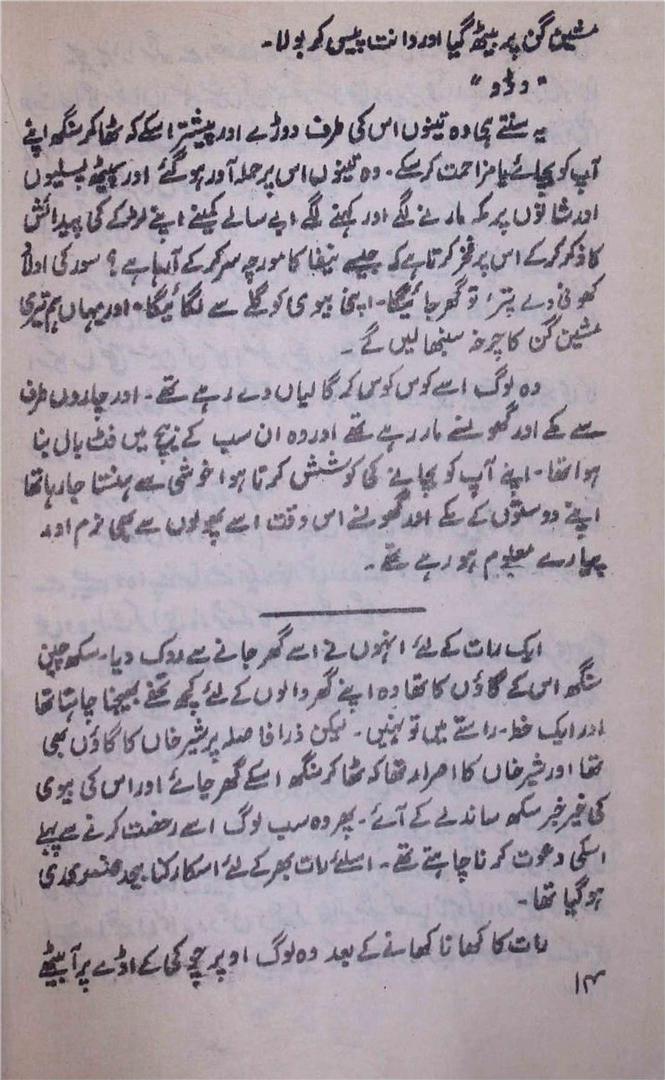 مشین گن پر بیٹھ گیا اور دانت پیس کر بولا۔
"وڈو"
یہ سنتے ہی وہ تینوں اس کی طرف دوڑے اور پیشتر اسکے کہ ٹھاکر سنگھ اپنے
آپ کو بچائے یا مزاحمت کر سکے۔ وہ تینوں اس پر حملہ آور ہو گئے اور پیٹھ پسلیوں
اور شانوں پر مکہ مارنے لگے اور کہنے لگے ابے سالے کمینے اپنے لڑکے کی پیدائش
کا ذکر کر کے اس پر فخر کرتا ہے کہ جیسے نیفا کا مورچہ سر کر کے آ رہا ہے؟ سور کی اولاد
کھوتی دے پتر! تو گھر جائیگا۔ اپنی بیوی کو گلے سے لگائیگا۔ اور یہاں ہم تیری
مشین گن کا چرخہ سنبھالیں گے۔
وہ لوگ اسے کوس کوس کر گالیاں دے رہے تھے۔ اور چاروں طرف
سے مکے اور گھونسے مار رہے تھے اور وہ ان سب کے بیچ میں فٹ بال بنا
ہوا تھا۔ اپنے آپ کو بچانے کی کوشش کرتا ہوا خوشی سے ہنستا جا رہا تھا
اپنے دوستوں کے مکے اور گھونسے اس وقت اسے پھولوں سے بھی نرم اور
پیارے معلوم ہو رہے تھے۔
ایک رات کے لئے انہوں نے اسے گھر جانے سے روک دیا۔ سکھ چین
سنگھ اس کے گاؤں کا تھا وہ اپنے گھر والوں کے لئے کچھ تحفے بھیجنا چاہتا تھا
اور ایک خط۔ راستے میں تو نہیں۔ لیکن ذرا فاصلہ پر شیر خاں کا گاؤں بھی
تھا اور شیر خاں کا اصرار تھا کہ ٹھاکر سنگھ اسکے گھر جائے اور اس کی بیوی
کی خیر خبر سکھ ساند لے کے آئے۔ پھر وہ سب لوگ اسے رخصت کرنے سے پہلے
اسکی دعوت کرنا چاہتے تھے۔ اسلئے رات بھر کے لئے اسکا رکنا بیحد ضروری
ہو گیا تھا۔
رات کا کھانا کھانے کے بعد وہ لوگ اوپر چوکی کے اڈے پر آ بیٹھے
۱۴